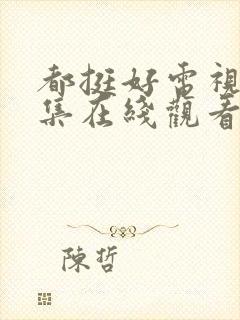 都挺好電視
集在綫觀看
陳哲